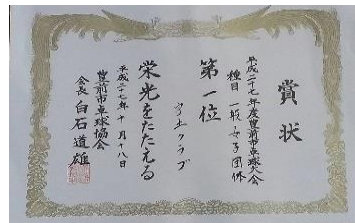 賞状
平成二十七年度豊前市卓球大会
種目 一般女子団体
第一位
クラブ
栄光をたたえる
平成二十七年十月十八日
豊前市卓球協会
会長 白石道雄